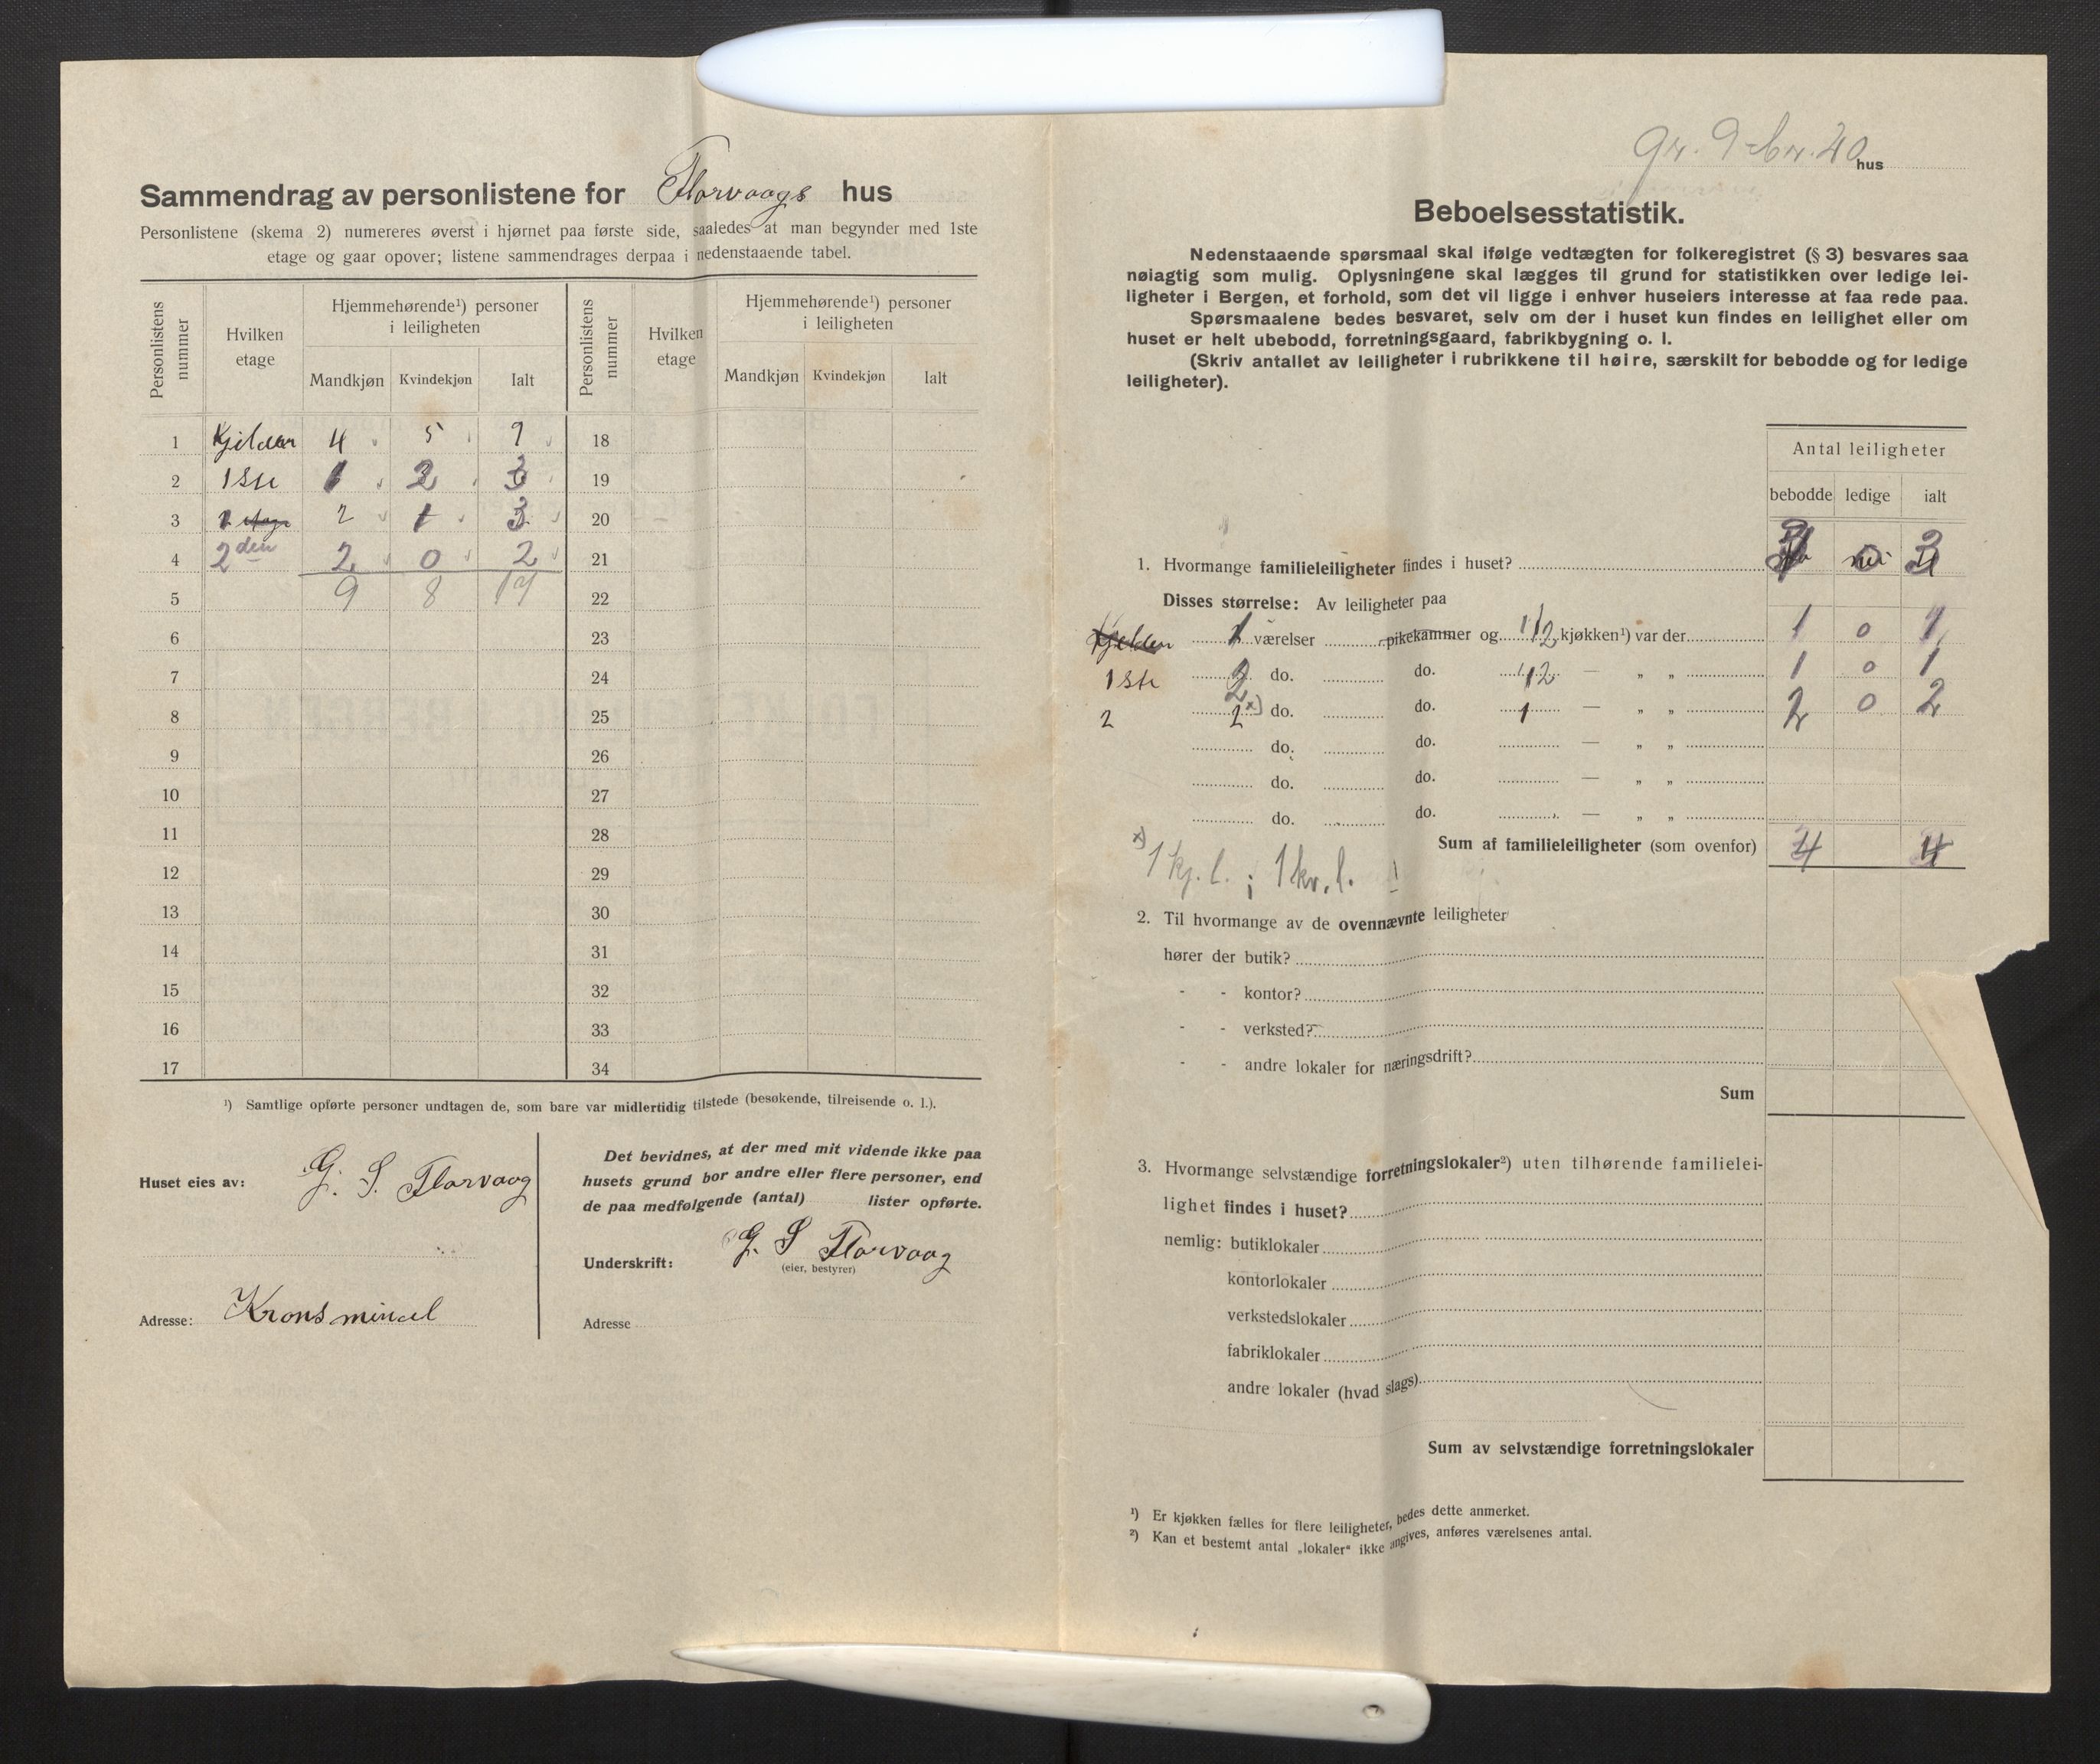 Sammendrag av personlistene for Florvaags hus
Personlistene (skema 2) numereres øverst i hjørnet paa første side, saaledes at man begynder med 1ste
etage og gaar opover; listene sammendrages derpaa i nedenstaaende tabel.
Personlistens nummer Hvilken etage Hjemmehørende¹) personer i leiligheten Mandkjøn Kvindekjøn Ialt Personlistens nummer Hvilken etage Hjemmehørende¹) personer i leiligheten Mandkjøn Kvindekjøn Ialt
1 Kjelder 4 5 9 18
2 1ste 1 2 3 19
3 2 1 3 20
4 2den 2 0 2 21
5 9 8 17 22
6 23
7 24
8 25
9 26
10 27
11 28
12 29
13 30
14 31
15 32
16 33
17 34
¹) Samtlige opførte personer undtagen de, som bare var midlertidig tilstede (besøkende, tilreisende o. l.).
Huset eies av: G. S. Florvaag
Adresse: Kronsminde
Det bevidnes, at der med mit vidende ikke paa
husets grund bor andre eller flere personer, end
de paa medfølgende (antal) lister opførte.
Underskrift: G. S Florvaag
(eier, bestyrer)
Adresse
gr. 9 br. 20 hus
Beboelsesstatistik.
Nedenstaaende spørsmaal skal ifølge vedtægten for folkeregistret (§ 3) besvares saa
nøiagtig som mulig. Oplysningene skal lægges til grund for statistikken over ledige lei-
ligheter i Bergen, et forhold, som det vil ligge i enhver huseiers interesse at faa rede paa.
Spørsmaalene bedes besvaret, selv om der i huset kun findes en leilighet eller om
huset er helt ubebodd, forretningsgaard, fabrikbygning o. l.
(Skriv antallet av leiligheter i rubrikkene til høire, særskilt for bebodde og for ledige
leiligheter).
Antal leiligheter
bebodde ledige ialt
1. Hvormange familieleiligheter findes i huset? 0 3
Disses størrelse: Av leiligheter paa
Kjelder 1 værelser pikekammer og 1/2 kjøkken¹) var der 1 0 1
1ste do. do. 1/2 — „ „ 1 0 1
2 2 x) do. do. 1 — „ „ 2 0 2
do. do. — „ „
do. do. — „ „
do. do. — „ „
Sum af familieleiligheter (som ovenfor) 4 4
x) 1 kj. l. ; 1 kv. l. !
2. Til hvormange av de ovennævnte leiligheter
hører der butik?
- - kontor?
- - verksted?
- - andre lokaler for næringsdrift?
Sum
3. Hvormange selvstændige forretningslokaler²) uten tilhørende familielei-
lighet findes i huset?
nemlig: butiklokaler
kontorlokaler
verkstedslokaler
fabriklokaler
andre lokaler (hvad slags)
Sum av selvstændige forretningslokaler
¹) Er kjøkken fælles for flere leiligheter, bedes dette anmerket.
²) Kan et bestemt antal „lokaler“ ikke angives, anføres værelsenes antal.